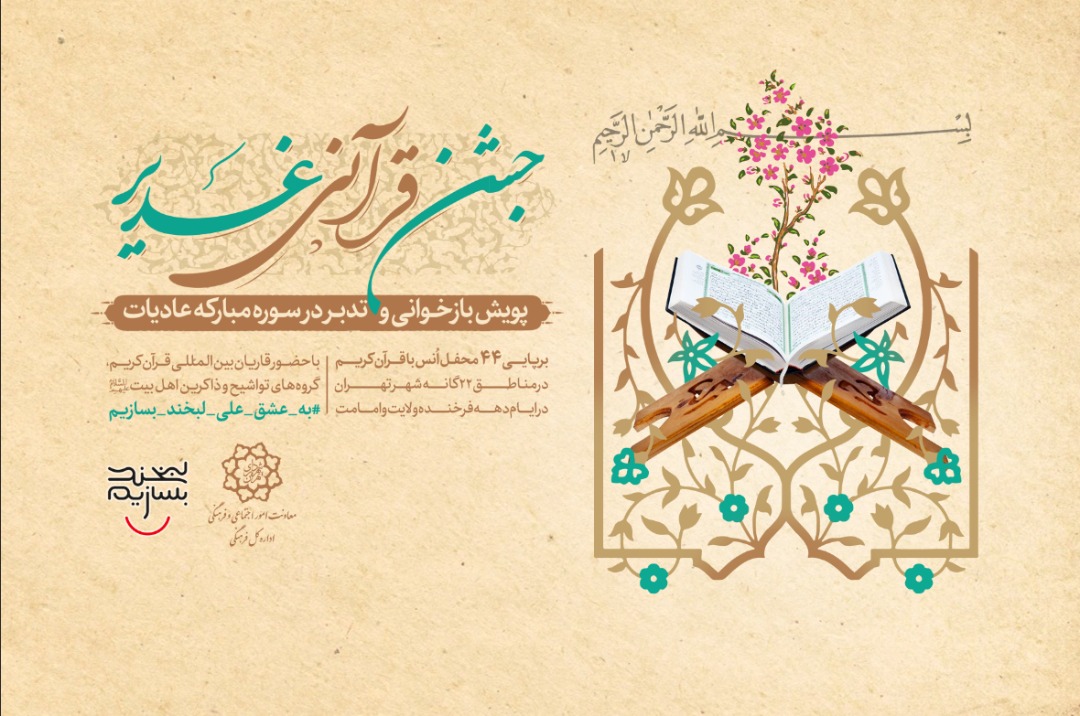 بِسْمِ اللهِ الرَّحْمٰنِ الرَّحِیمِ
جشن قرآنی غدیر
پویش بازخوانی و تدبر در سوره مبارکه عادیات
برپایی ۴۴ محفل اُنس با قرآن کریم
در مناطق ۲۲ گانه شهر تهران
در ایام دهه فرخنده ولایت و امامت
با حضور قاریان بین المللی قرآن کریم،
گروه‌های تواشیح و ذاکرین اهل بیت
#به_عشق_علی_لبخند_بسازیم
لبخند
بسازیم
معاونت امور اجتماعی و فرهنگی
اداره کل فرهنگی